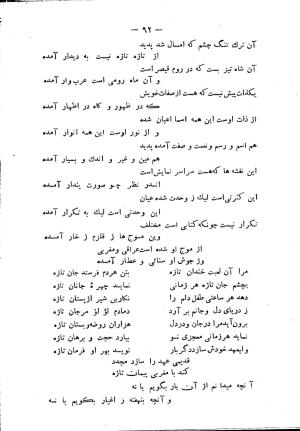 — ۹۲ —
آن ترك تنگ چشم كه امسال شد پدید
از تازه تازه نیست به دیدار آمده
آن شاه نیز بست كه در روم قیصر است
و آن ماه رومی است عرب وار آمده
یكذات بیش نیست كه هست از صفات خویش
گه در ظهور و گاه در اظهار آمده
از ذات اوست این همه اسما عیان شده
و از نور اوست این همه انوار آمده
هم اسم و رسم و نعت و صفت آمده پدید
هم عین و غیر و اندك و بسیار آمده
این نقشها كه هست سراسر نمایش است
اندر نظر چو صورت پندار آمده
این كثرتی است لیك ز وحدت شده عیان
این وحدتی است لیك به تكرار آمده
تكرار نیست چونكه كتابی است مختلف
وین موج ها ز قلزم ز خار آمده
از موج او شده است عراقی و مغربی
وز جوش او سنائی و عطار آمده
مرا آن لعبت خندان تازه
بتن هردم فرستد جان تازه
بچشم جان تازه هر زمانی
نماید چهرۀ جانان تازه
دهد هر ساعتی طفل دلم را
نگارین شیر از پستان تازه
ز دریای دل و جانم بر آرد
دمادم لؤلؤ مرجان تازه
برون آید مرا درجان ودردل
هزاران روضه وبستان تازه
نماید هر زمانی معجزی نو
بیارد حجت و برهان تازه
و ایمهد خودش سازد دگر بار
نویسد بهر او فرمان تازه
قدیمی عهد را سازد مجدد
كند با مغربی پیمان تازه
آ نچه میدا نم از آن یار بگویم یا نه
و آنچه بنهفته ز اغیار بگویم یا نه